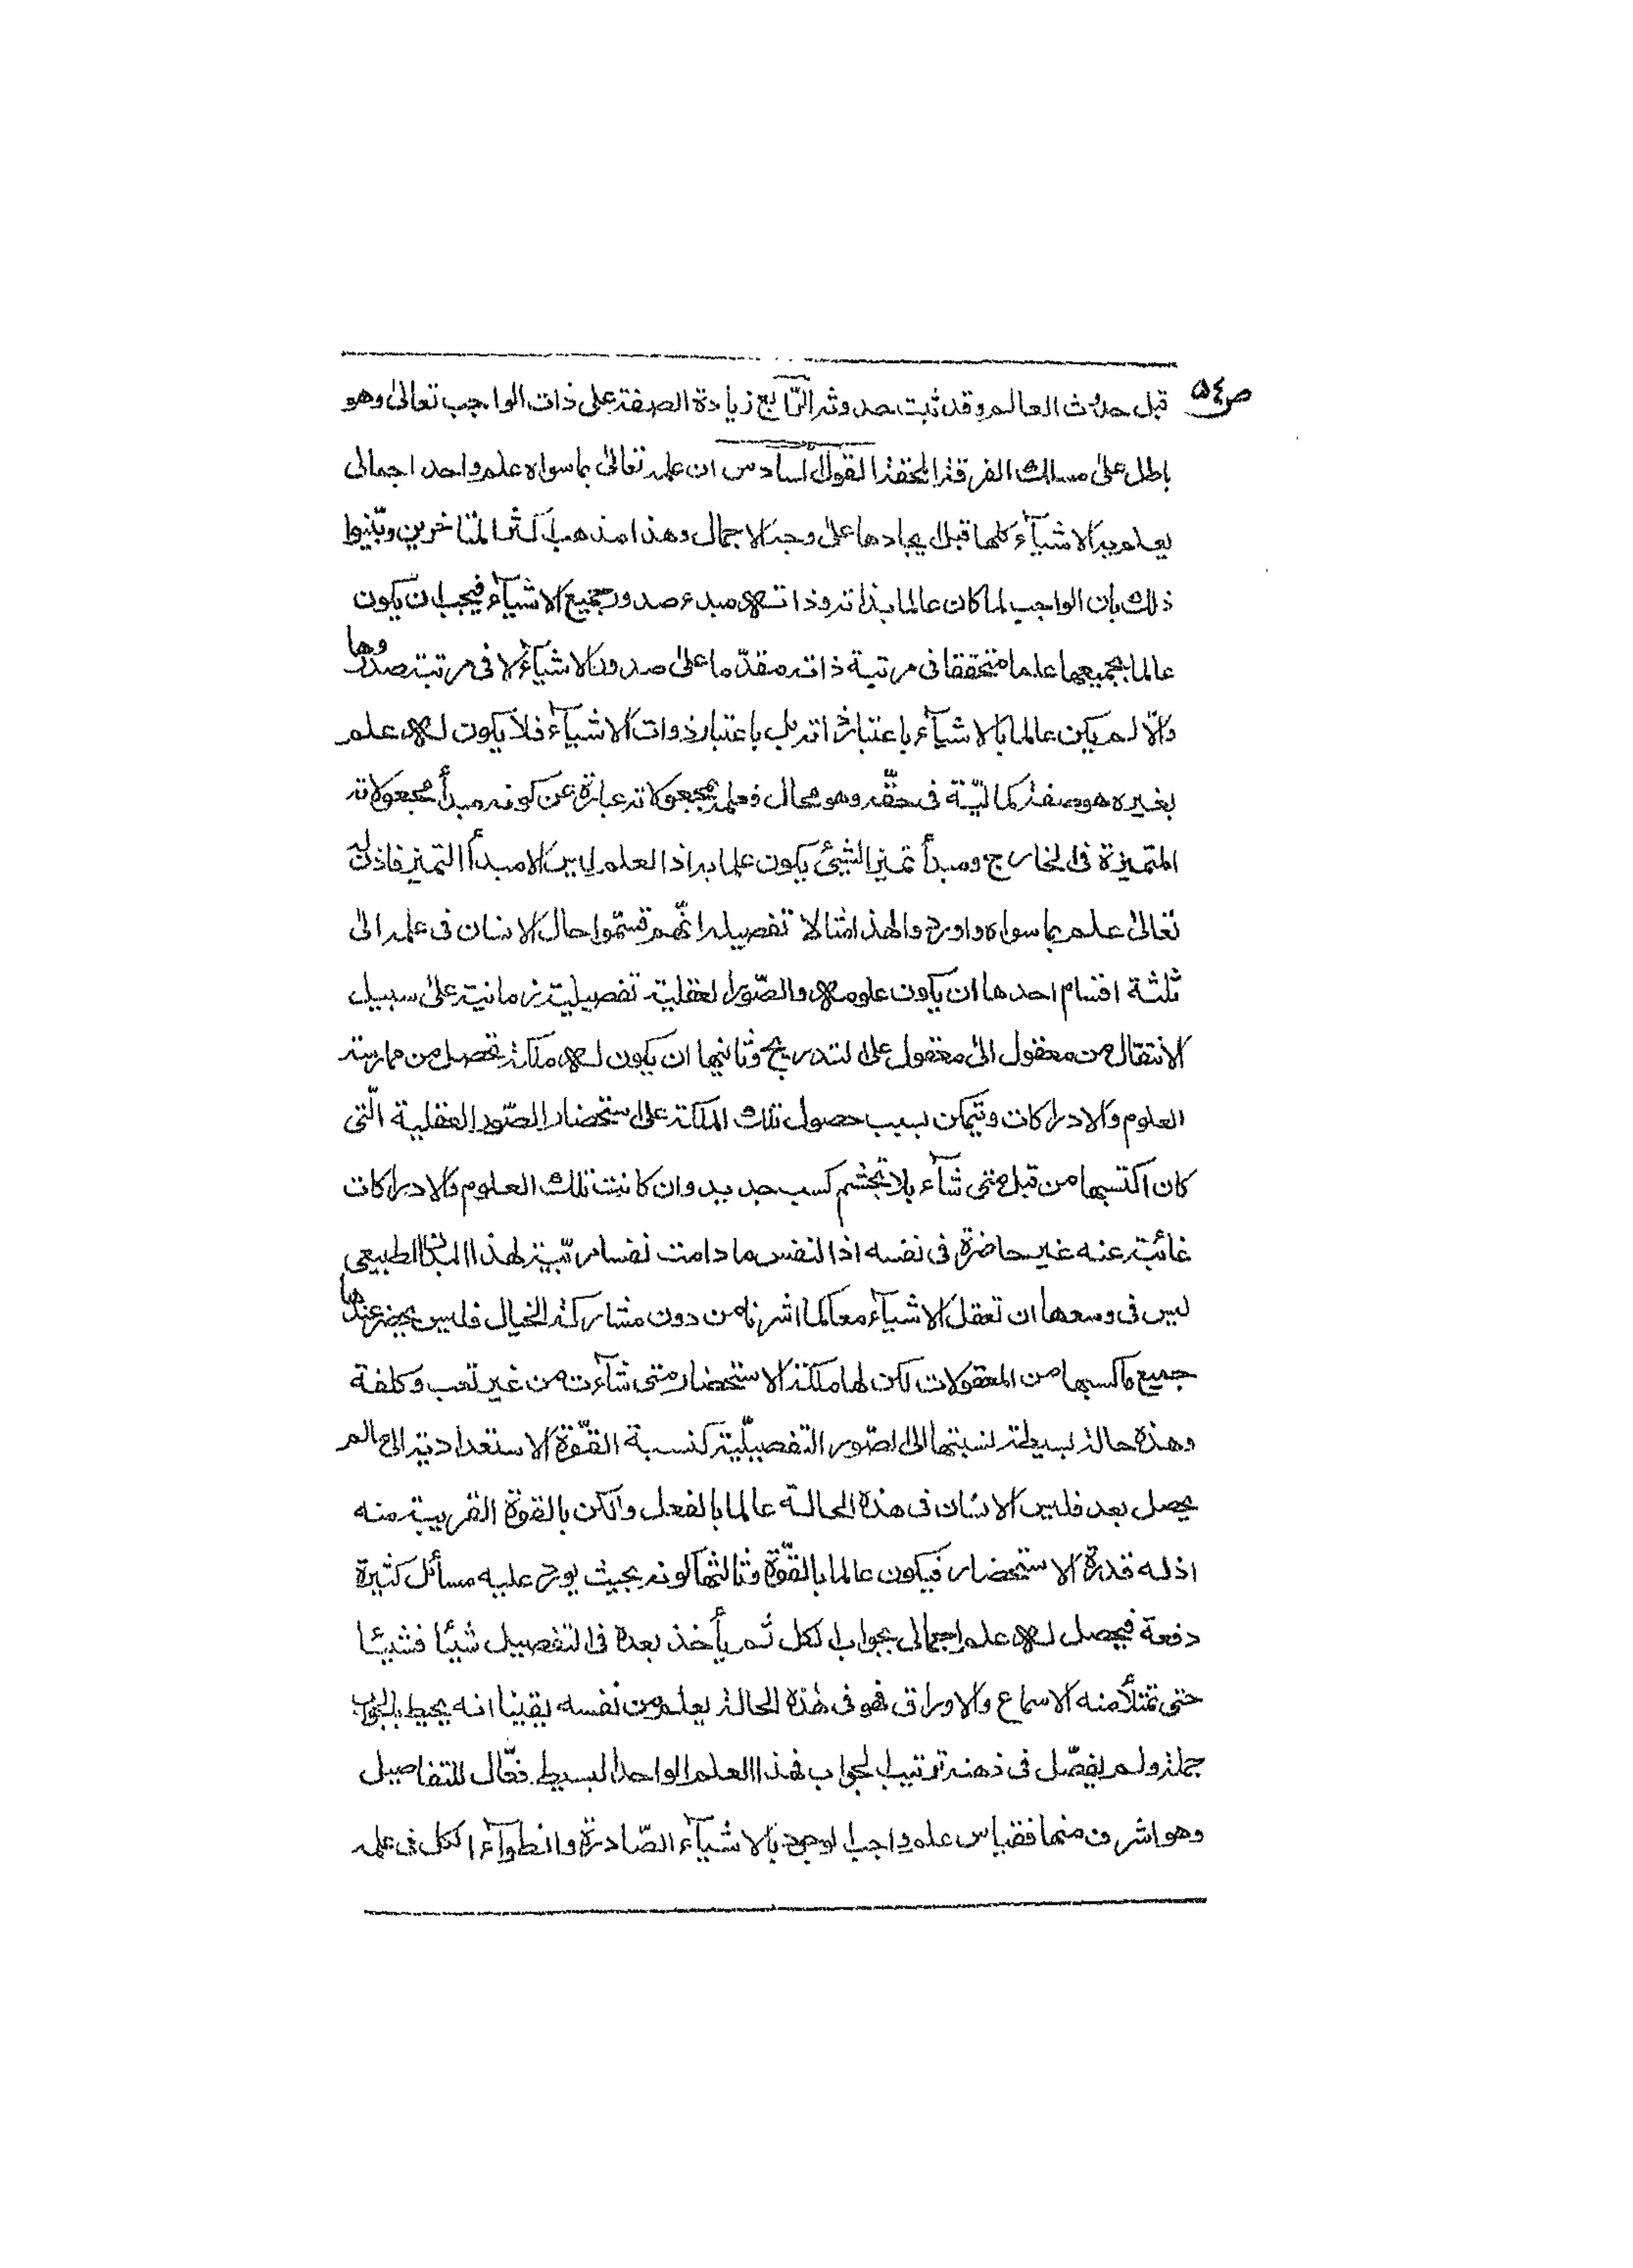 ص۵٤
قبل حدوث العالم وقد ثبت حدوثه الرّابع زيادة الصفة على ذات الواجب تعالىٰ وهو
باطل علىٰ مسالك الفرقة المحقة القول السادس ان علمه تعالىٰ بما سواه علم واحد اجمالى
يعلم به الاشيآء كلها قبل ايجادها علىٰ وجه الاجمال وهذا مذهب اكثر المتاخرين وبيّنوا
ذلك بان الواجب لما كان عالما بذاته وذاته مبدء صدور جميع الاشيآء فيجب ان يكون
عالما بجميعها علما متحققا فى مرتبة ذاته مقدّما علىٰ صدور الاشيآء لا فى مرتبة صدورها
والّا لم يكن عالما بالاشيآء باعتبار ذاته بل باعتبار ذوات الاشيآء فلا يكون له علم
بغيره هو صفة كماليّة فى حقّه وهو محال فعلمه بمجعولاته عبارة عن كونه مبدأ مجعولاته
المتميزة فى الخارج ومبدأ تميز الشيئ يكون علما به اذ العلم ليس الا مبدأ التميز فاذن له
تعالىٰ علم بما سواه واوردوا لهذا مثالا تفصيله انّهم قسّموا حال الانسان فى علمه الىٰ
ثلثة اقسام احدها ان يكون علومه والصّور العقلية تفصيلية زمانية علىٰ سبيل
الانتقال من معقول الىٰ معقول على التدريج وثانيها ان يكون له ملكة تحصل من ممارسة
العلوم والادراكات ويتمكن بسبب حصول تلك الملكة على استحضار الصّور العقلية الّتى
كان اكتسبها من قبل متى شآء بلا تجشم كسب جديد وان كانت تلك العلوم والادراكات
غائبة عنه غير حاضرة فى نفسه اذ النفس ما دامت نفسا مرتّبة لهذا البدن الطبيعى
ليس فى وسعها ان تعقل الاشيآء معا كما اشرنا من دون مشاركة الخيال فليس يحضر عندها
جميع ما كسبها من المعقولات لكن لها ملكة الاستحضار متى شآءت من غير تعب وكلفة
وهذه حالة بسيطة نسبتها الى الصّور التفصيليّة كنسبة القوّة الاستعدادية الى ما لم
يحصل بعد فليس الانسان فى هذه الحالة عالما بالفعل ولكن بالقوة القريبة منه
اذ له قدرة الاستحضار فيكون عالما بالقوّة وثالثها كونه بحيث يورد عليه مسائل كثيرة
دفعة فيحصل له علم اجمالى بجواب الكل ثم يأخذ بعده فى التفصيل شيئا فشيئا
حتى تمتلأ منه الاسماع والاوراق فهو فى هٰذه الحالة يعلم من نفسه يقينا انه يحيط بالجواب
جملة ولم يفصّل فى ذهنه ترتيب الجواب فهذا العلم الواحد البسيط فعّال للتفاصيل
وهو اشرف منها فقياس علم واجب الوجود بالاشيآء الصّادرة وانطوآء الكل فى علمه